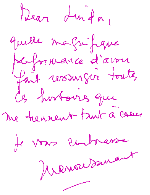 Dear Linda,
quelle magnifique
performance d'avoir
fait ressurgir toutes
ces histoires que
me tiennent tant à coeur
Je vous embrasse